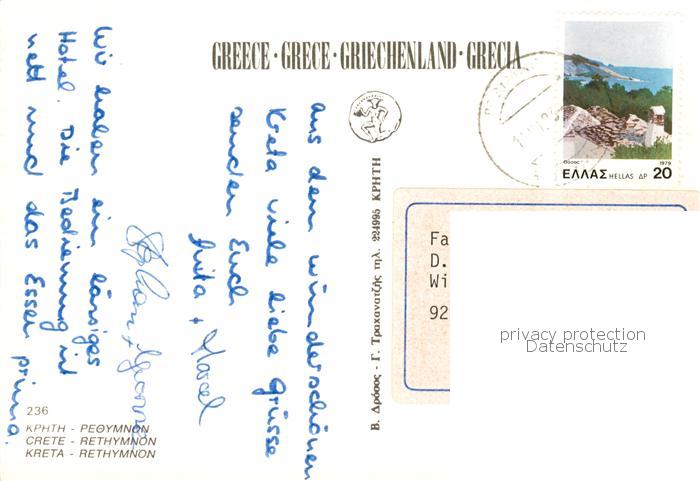 GREECE · GRECE · GRIECHENLAND · GRECIA
aus dem wunderschönen
Kreta viele liebe Grüsse
senden Euch
Anita + Marcel
Wir haben ein lässiges
Hotel. Die Bedienung ist
nett und das Essen prima.
236
ΚΡΗΤΗ - ΡΕΘΥΜΝΟΝ
CRETE - RETHYMNON
KRETA - RETHYMNON
Β. Δρόσος - Γ. Τραχανατζής τηλ. 224995 ΚΡΗΤΗ
Θασος 1979
ΕΛΛΑΣ HELLAS ΔΡ 20
Fa
D.
Wi
92
privacy protection
Datenschutz